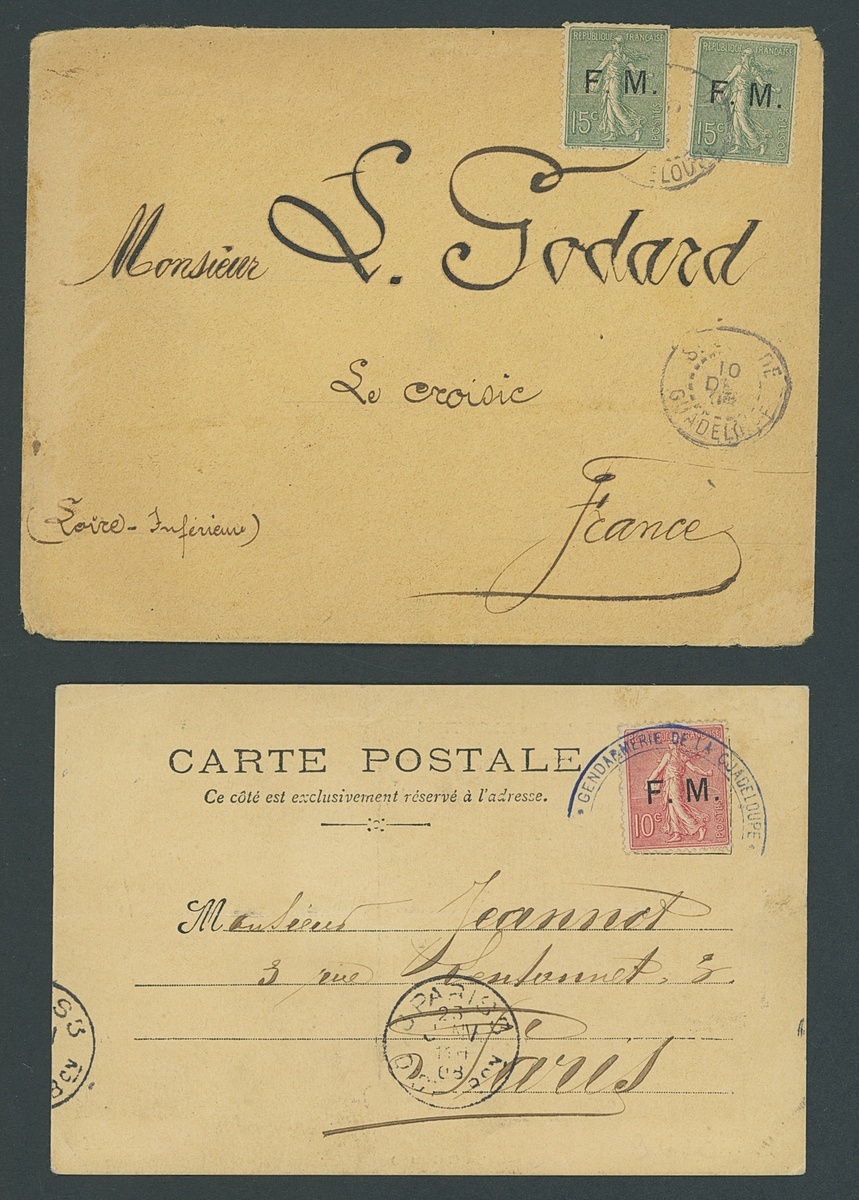 REPUBLIQUE FRANÇAISE
F. M.
15c
POSTES
REPUBLIQUE FRANÇAISE
F. M.
15c
POSTES
Monsieur L. Godard
Le Croisic
DE
10
GUADELOUPE
(Loire-Inférieure)
France
CARTE POSTALE
Ce côté est exclusivement réservé à l'adresse.
GENDARMERIE DE LA GUADELOUPE
F. M.
10c
POSTES
Monsieur Jeannot
3 rue
Paris
PARIS
23
JANV
08